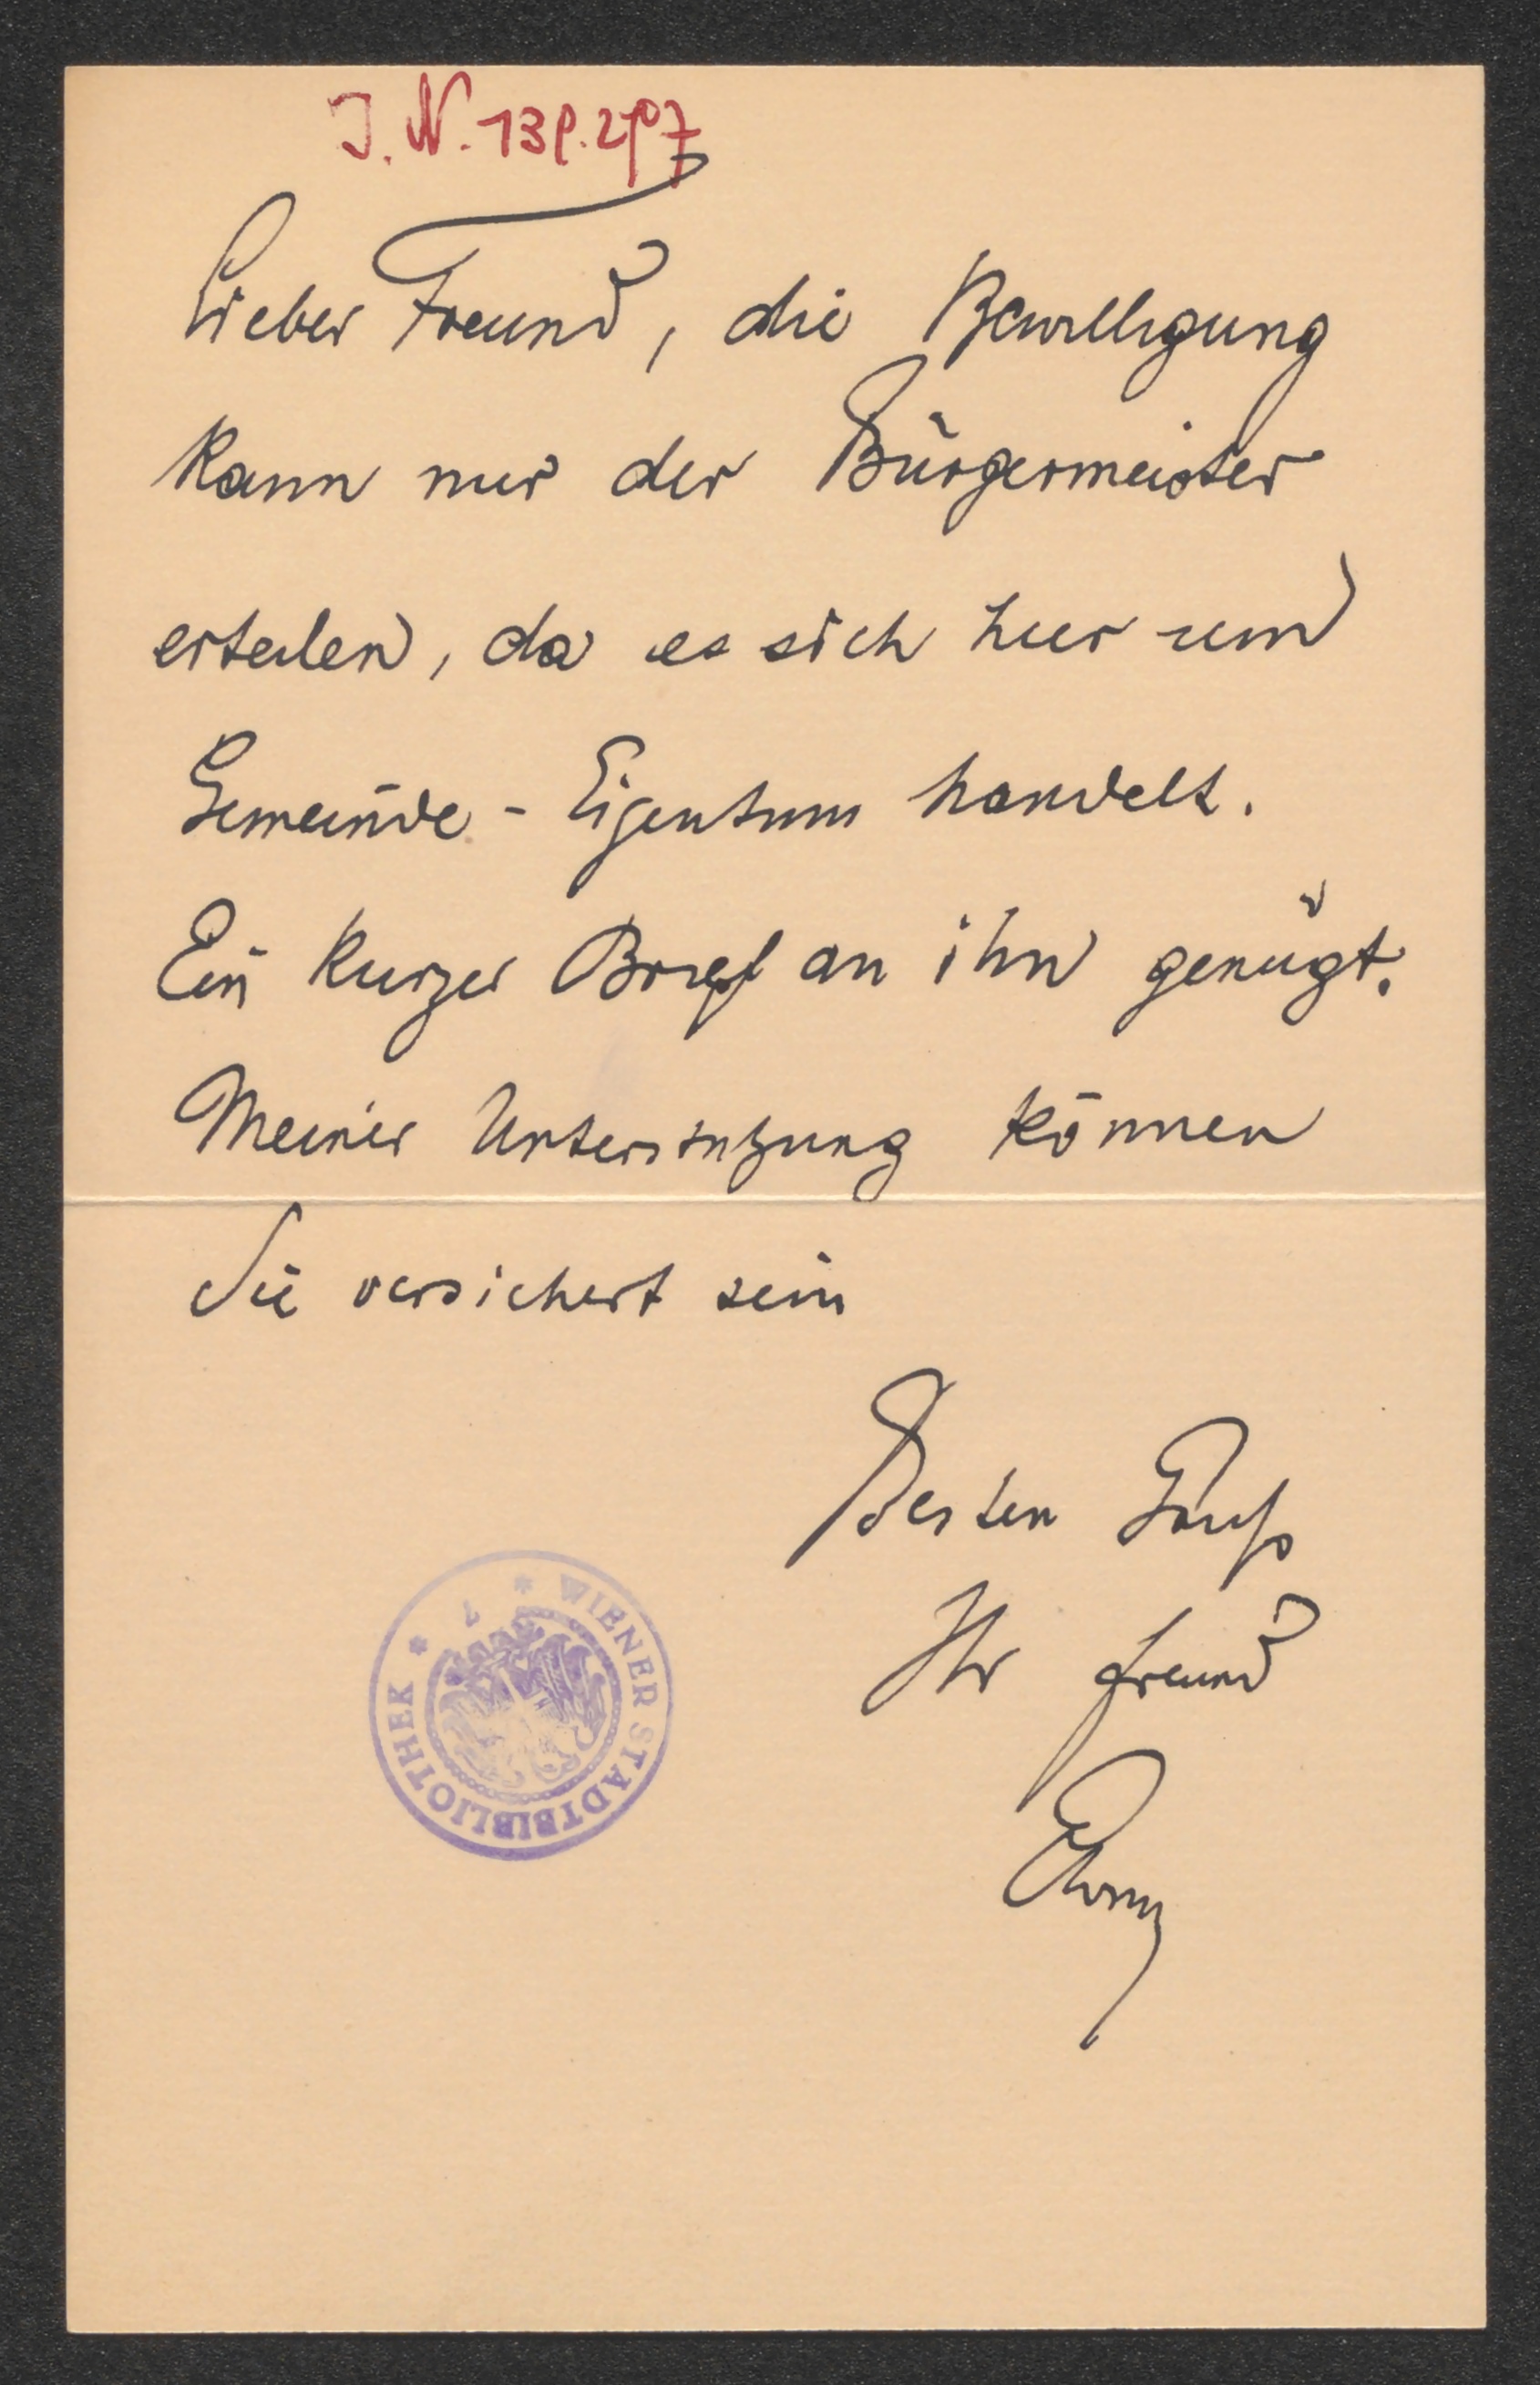 J. N. 138.287
Lieber Freund, die Bewilligung
kann nur der Bürgermeister
erteilen, da es sich hier um
Gemeinde - Eigentum handelt.
Ein kurzer Brief an ihn genügt.
Meiner Unterstützung können
Sie versichert sein
Besten Gruß
Ihr Freund
* WIENER STADTBIBLIOTHEK *